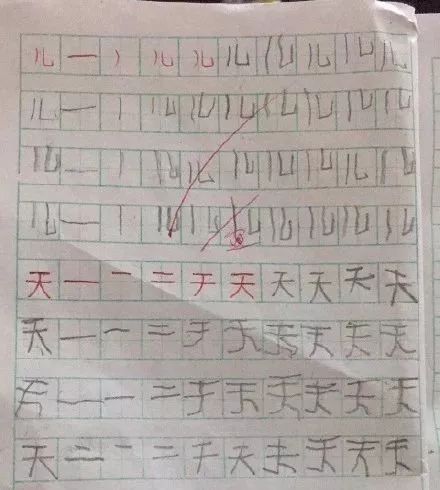 儿 一 丿 儿 儿 儿 儿 儿 儿 儿
儿 一 丿 儿 儿 儿 儿 儿 儿 儿
儿 一 丿 儿 儿 儿 儿 儿 儿 儿
儿 一 丿 儿 儿 儿 儿 儿 儿 儿
天 一 一 二 天 天 天 天 天
天 一 一 二 天 天 天 天 天
天 一 一 二 天 天 天 天 天
天 二 一 二 天 天 天 天 天